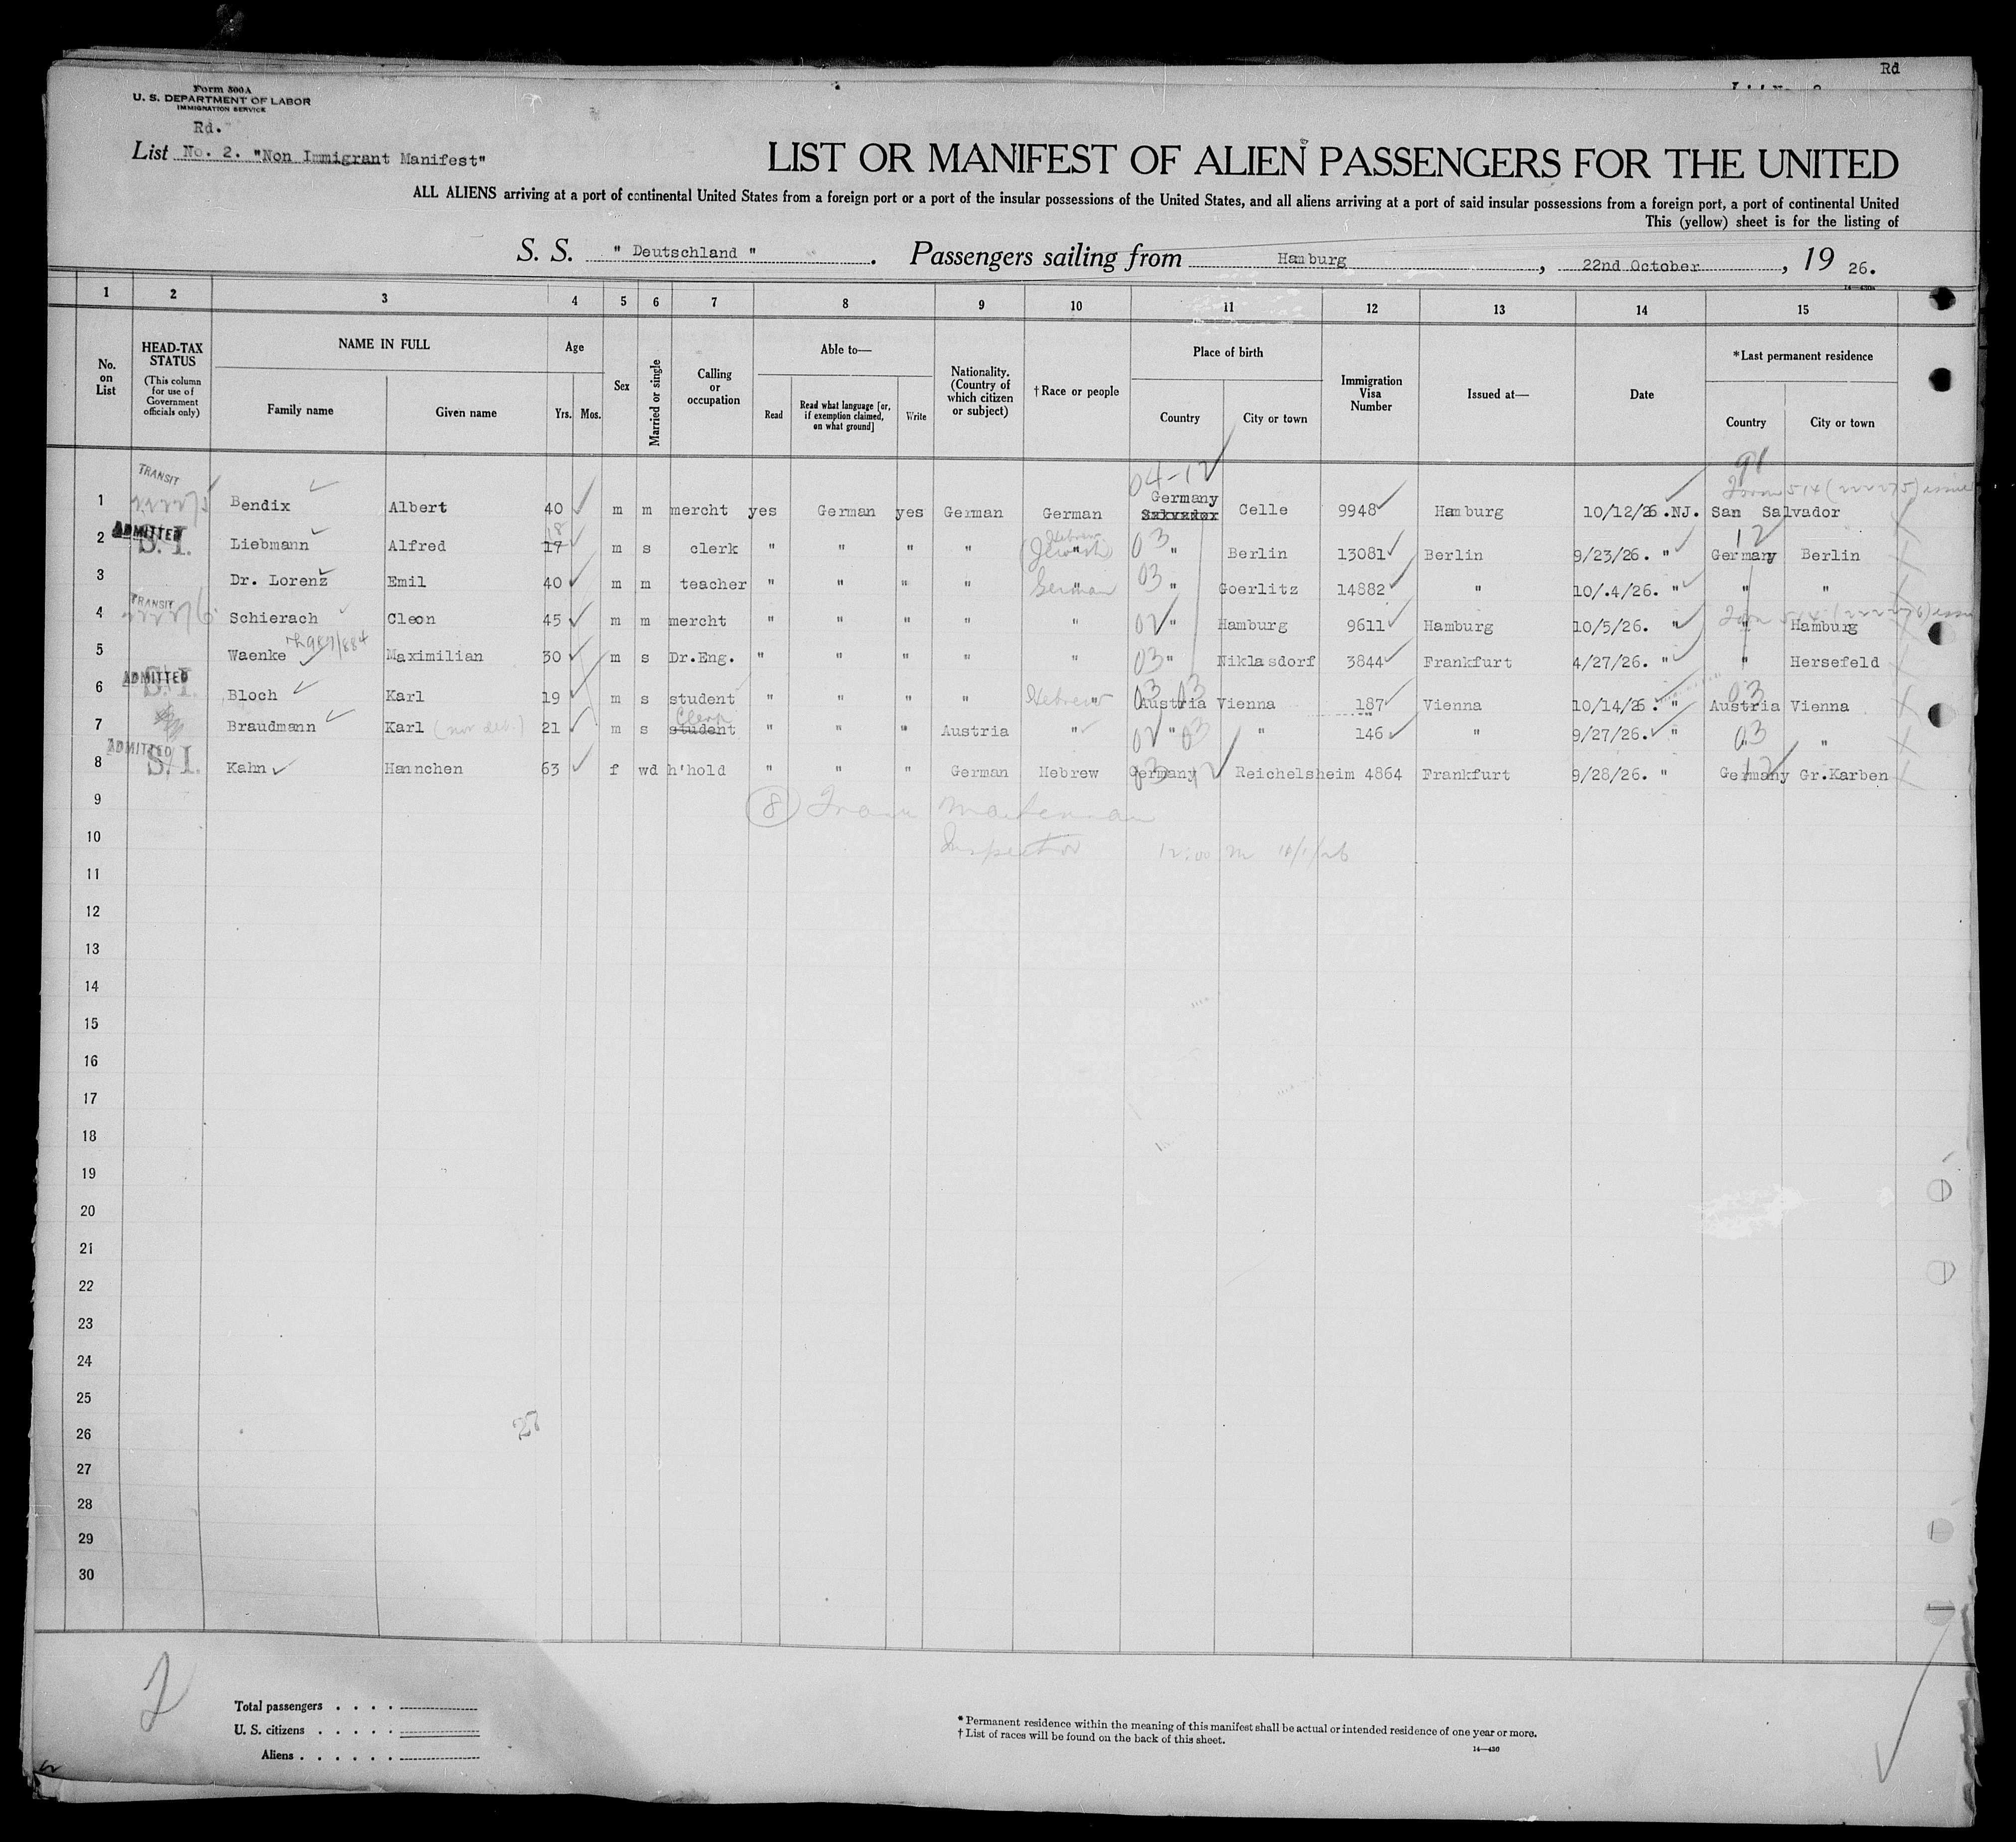 Rd
Form 500A
U. S. DEPARTMENT OF LABOR
IMMIGRATION SERVICE
Rd.
List No. 2. "Non Immigrant Manifest"
LIST OR MANIFEST OF ALIEN PASSENGERS FOR THE UNITED
ALL ALIENS arriving at a port of continental United States from a foreign port or a port of the insular possessions of the United States, and all aliens arriving at a port of said insular possessions from a foreign port, a port of continental United
This (yellow) sheet is for the listing of
S. S. " Deutschland " . Passengers sailing from Hamburg , 22nd October , 19 26.
1 2 3 4 5 6 7 8 9 10 11 12 13 14 15
No. on List
HEAD-TAX STATUS
(This column for use of Government officials only)
NAME IN FULL
Family name
Given name
Age
Yrs. Mos.
Sex
Married or single
Calling or occupation
Able to—
Read
Read what language [or, if exemption claimed, on what ground]
Write
Nationality. (Country of which citizen or subject)
† Race or people
Place of birth
Country
City or town
Immigration Visa Number
Issued at—
Date
* Last permanent residence
Country
City or town
TRANSIT
04-12
91
1 Bendix Albert 40 m m mercht yes German yes German German Germany Salvador Celle 9948 Hamburg 10/12/26.NJ. San Salvador
ADMITTED S.I.
2 Liebmann Alfred 17 18 m s clerk " " " " " Jewish Hebrew 03 " Berlin 13081 Berlin 9/23/26. " 12 Germany Berlin
3 Dr. Lorenz Emil 40 m m teacher " " " " " German 03 " Goerlitz 14882 " 10/.4/26. " " "
TRANSIT
4 Schierach Cleon 45 m m mercht " " " " " 02 " Hamburg 9611 Hamburg 10/5/26. " " Hamburg
5 Waenke Maximilian 30 m s Dr.Eng. " " " " " 03 " Niklasdorf 3844 Frankfurt 4/27/26. " " Hersefeld
ADMITTED S.I.
6 Bloch Karl 19 m s student " " " " " Hebrew 03 03 Austria Vienna 187 Vienna 10/14/26. " 03 Austria Vienna
7 Braudmann Karl 21 m s student Clerk " " " Austria " 02 " 03 " 146 " 9/27/26. " 03 " "
ADMITTED S.I.
8 Kahn Hannchen 63 f wd h'hold " " " German Hebrew Germany Reichelsheim 4864 Frankfurt 9/28/26. " 12 Germany Gr.Karben
9
8
10
Inspector 12:00 M 11/1/26
11
12
13
14
15
16
17
18
19
20
21
22
23
24
25
26
27
28
29
30
2
Total passengers
U. S. citizens
Aliens
* Permanent residence within the meaning of this manifest shall be actual or intended residence of one year or more.
† List of races will be found on the back of this sheet.
14—430